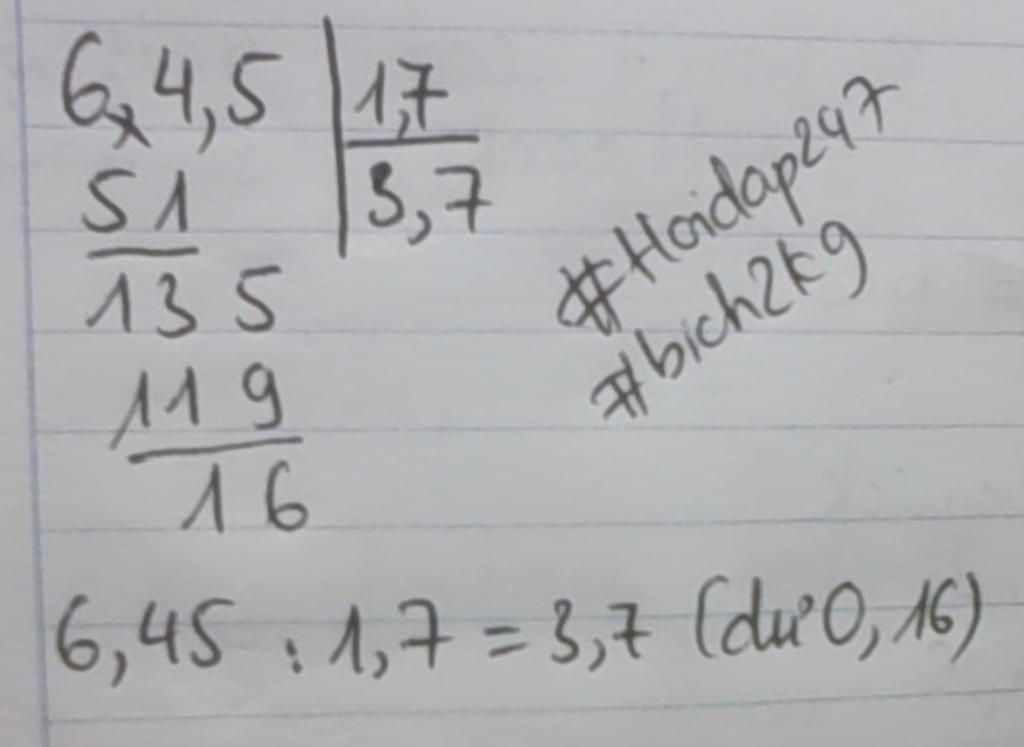 6,4,5 | 1,7
51 | 3,7
135
119
16
#Hoidap247
#bich2k9
6,45 : 1,7 = 3,7 (dư 0,16)